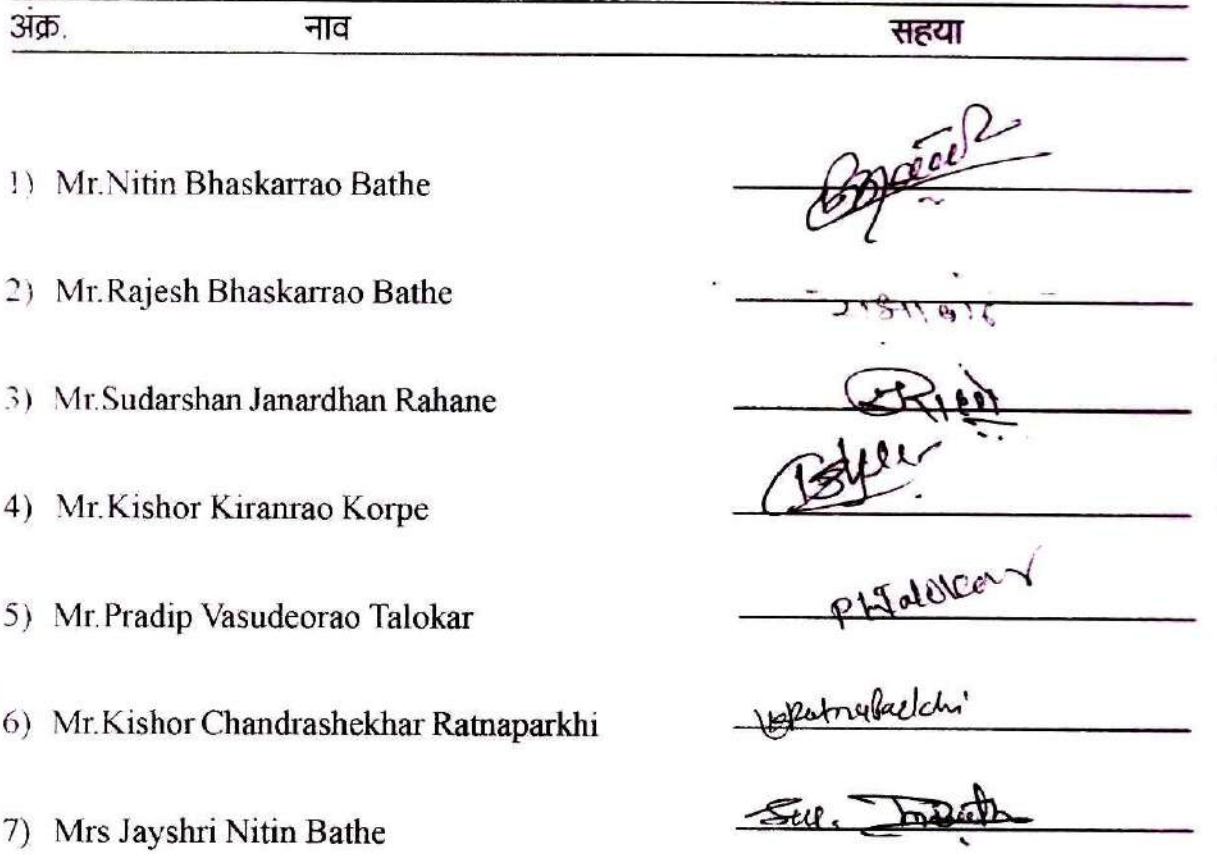 अंक्र. नाव सहया
1) Mr.Nitin Bhaskarrao Bathe
2) Mr.Rajesh Bhaskarrao Bathe
3) Mr.Sudarshan Janardhan Rahane
4) Mr.Kishor Kiranrao Korpe
5) Mr.Pradip Vasudeorao Talokar
6) Mr.Kishor Chandrashekhar Ratnaparkhi
7) Mrs Jayshri Nitin Bathe